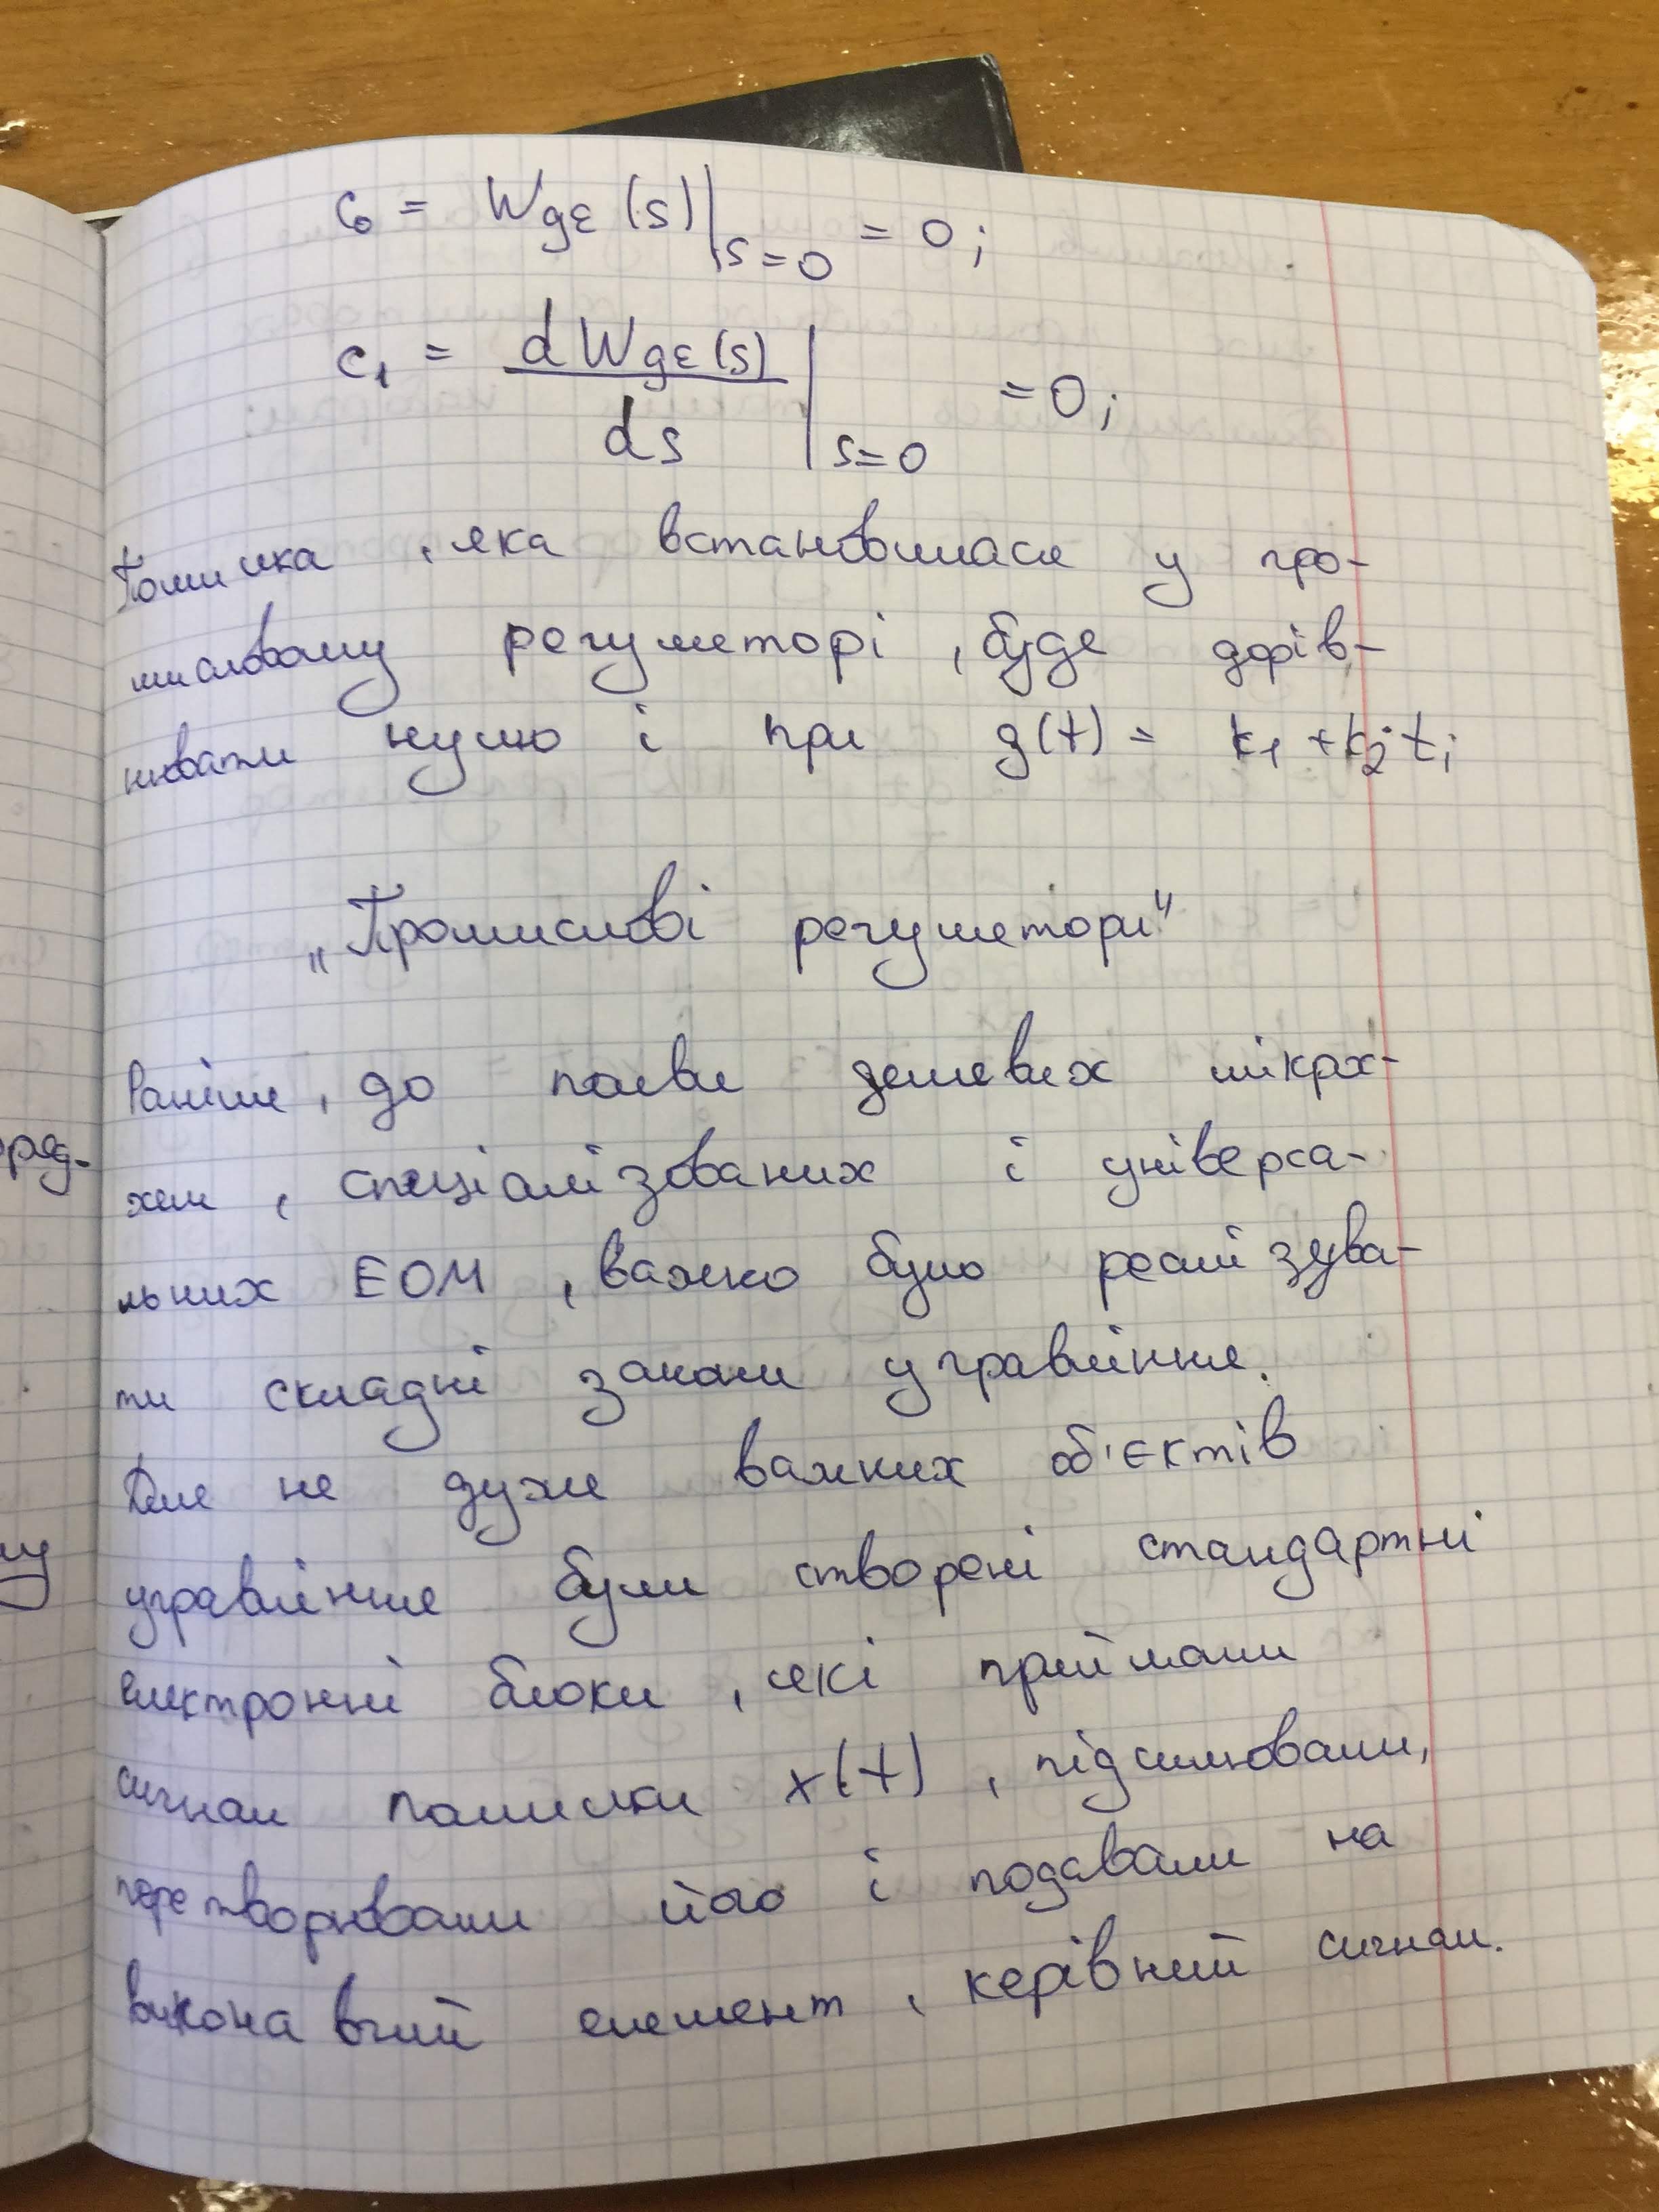 c₀ = Wgε(s)|s=0 = 0;
c₁ = dWgε(s)/ds |s=0 = 0;
Помилка, яка встановилася у про-
мисловому регуляторі, буде дорів-
нювати нулю і при g(t) = k₁ + k₂·t;
„Промислові регулятори"
Раніше, до появи дешевих мікрах-
хем, спеціалізованих і універса-
льних ЕОМ, важко було реалізува-
ти складні закони управління.
Для не дуже важких об'єктів
управління були створені стандартні
електронні блоки, які приймали
сигнал помилки x(t), підсилювали,
перетворювали його і подавали на
виконавчий елемент, керівний сигнал.
ряд-